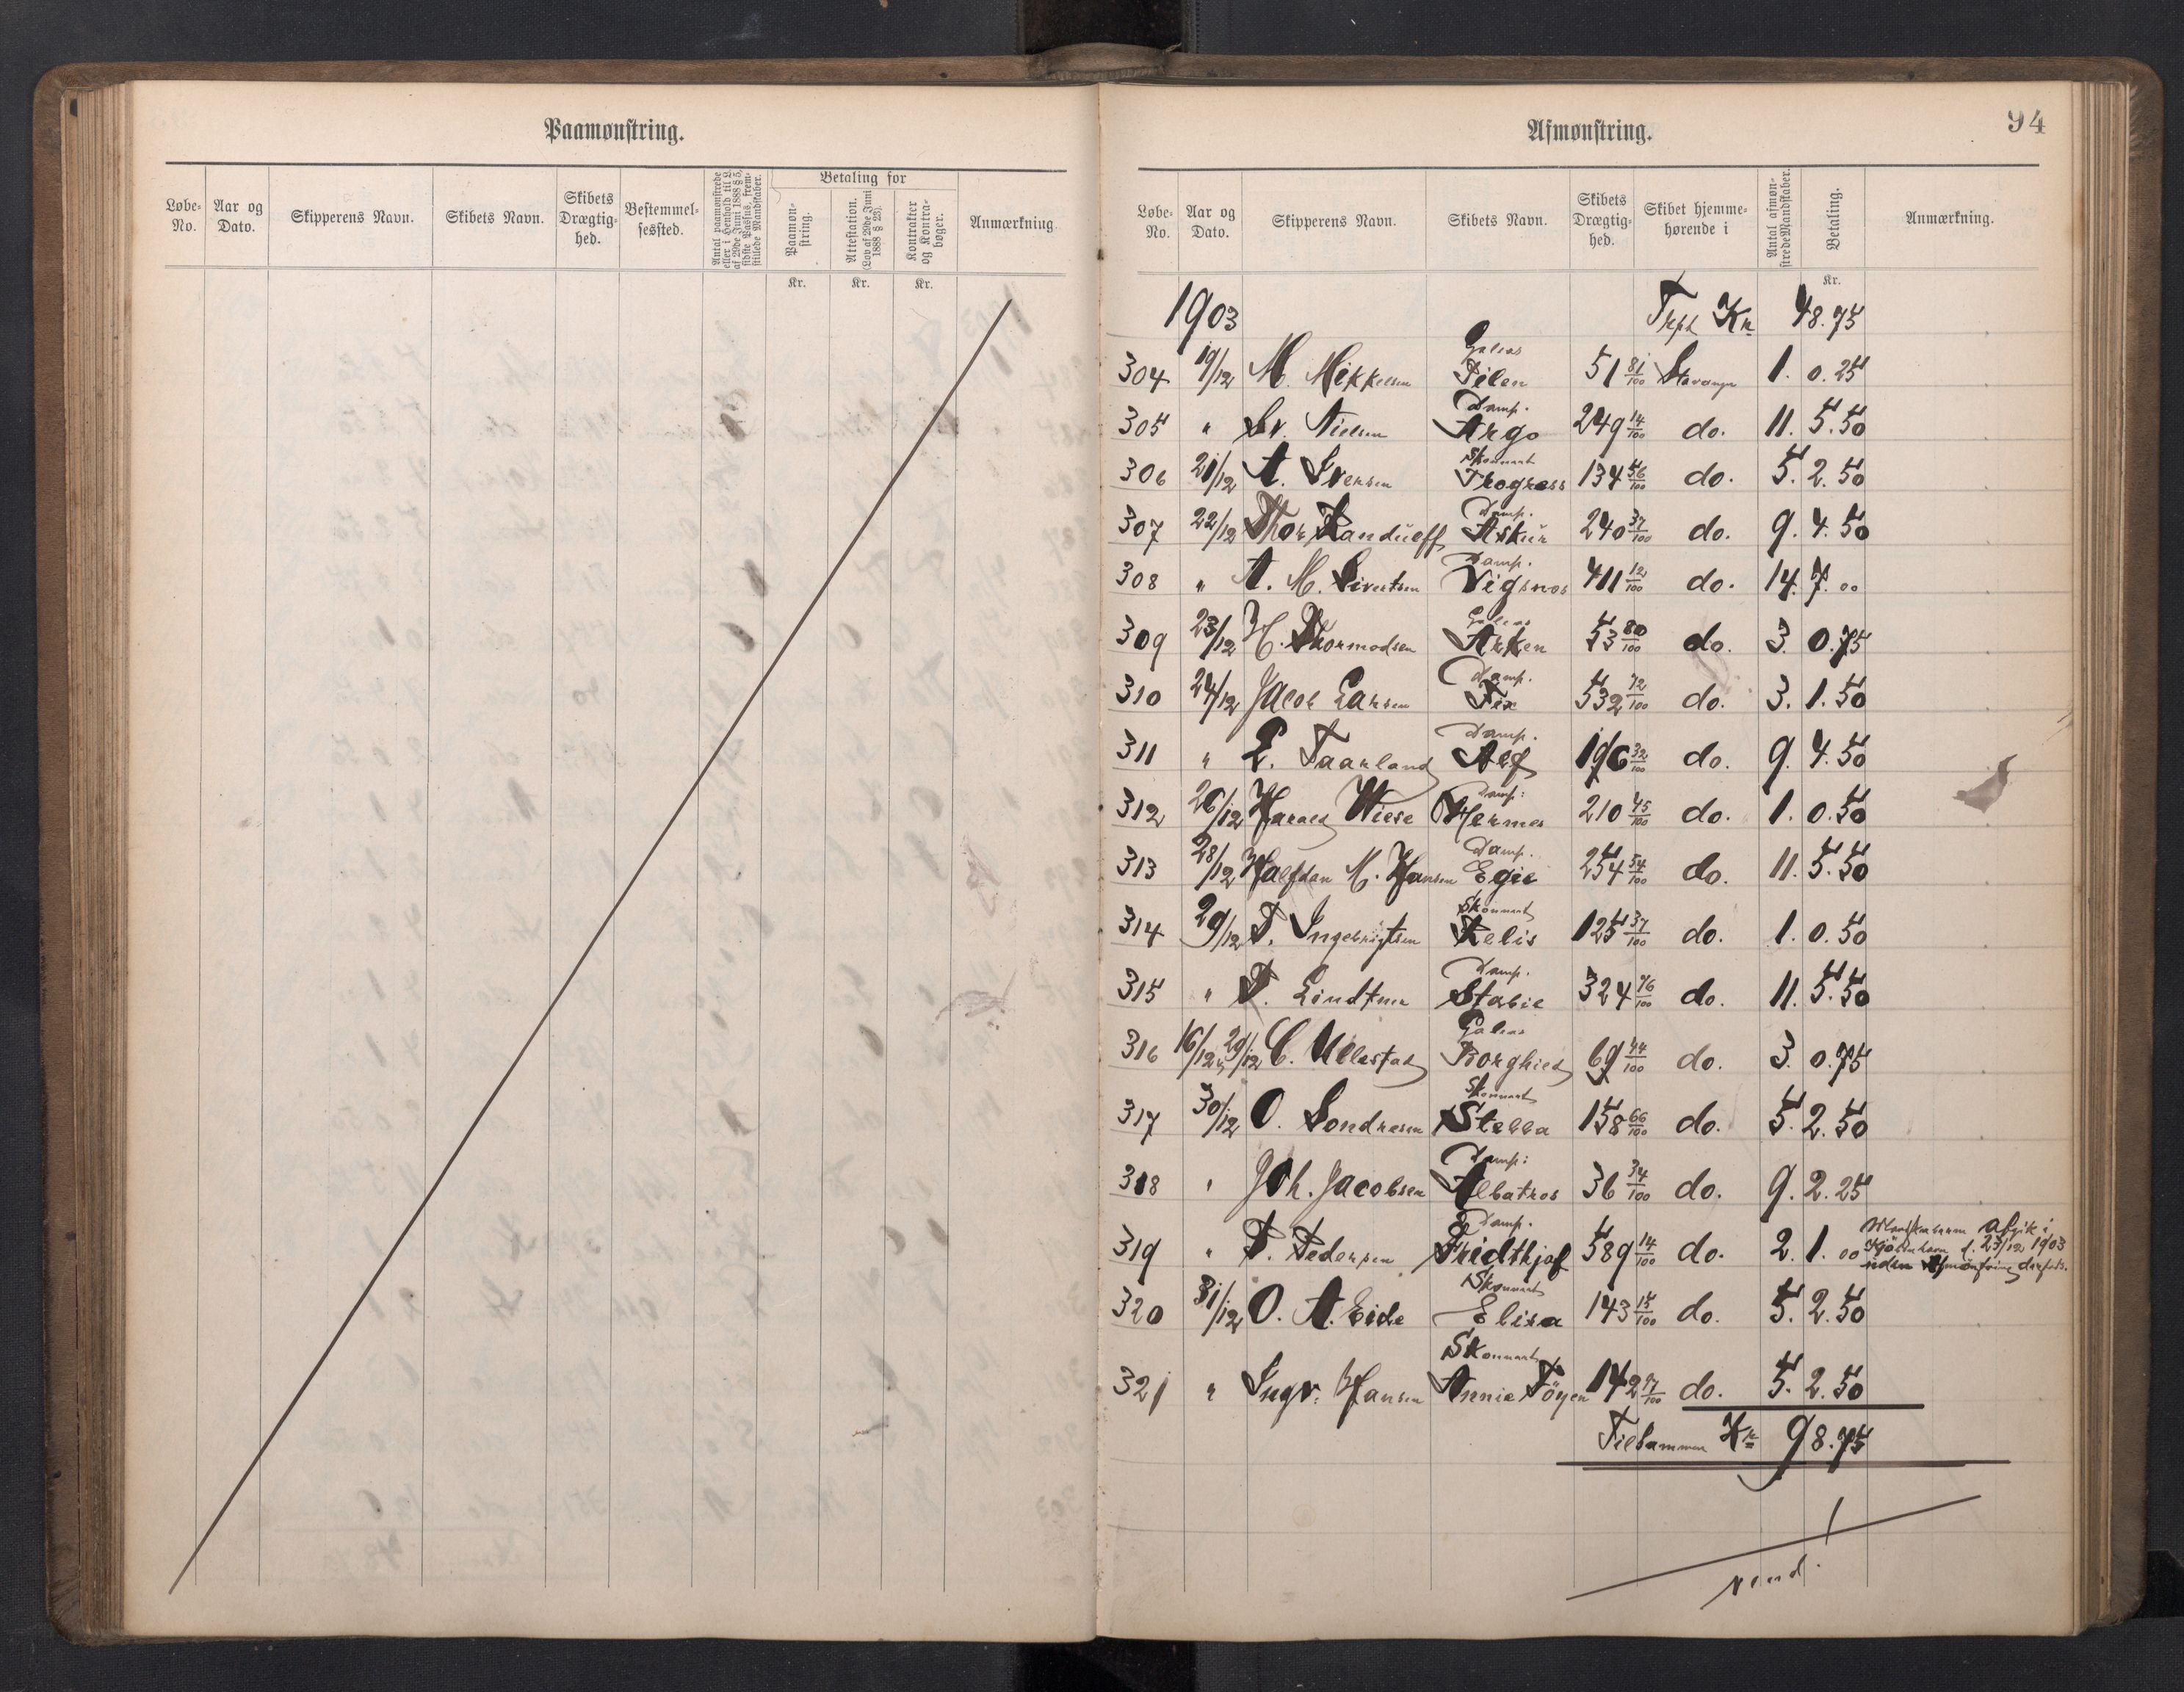 Paamønstring.
Løbe-No. Aar og Dato. Skipperens Navn. Skibets Navn. Skibets Drægtighed. Bestemmelsessted. Antal paamønstrede eller i Henhold til L. af 29de Juni 1888 § 5, sidste Passus, fremstillede Mandskaber. Betaling for Paamønstring. Attestation. (Lov af 29de Juni 1888 § 23). Kontrakter og Kontrabøger. Anmærkning.
Kr. Kr. Kr.
94
Afmønstring.
Løbe-No. Aar og Dato. Skipperens Navn. Skibets Navn. Skibets Drægtighed. Skibet hjemmehørende i Antal afmønstrede Mandskaber. Betaling. Anmærkning.
Kr.
1903 Trpt Kr 48.75
304 19/12 M. Mikkelsen Galeas Pilen 51 81/100 Stavanger 1. 0.25
305 " Sv. Nielsen Damp. Argo 249 14/100 do. 11. 5.50
306 21/12 A. Iversen Skonnert Progress 134 56/100 do. 5. 2.50
307 22/12 Thor Randulff Damp. Askur 240 37/100 do. 9. 4.50
308 " A. M. Sivertsen Damp. Vigsnes 411 12/100 do. 14. 7.00
309 23/12 H. Thormodsen Galeas Arken 53 80/100 do. 3. 0.75
310 24/12 Jacob Larsen Damp. Fix 532 72/100 do. 3. 1.50
311 " L. Taarland Damp. Alf 196 32/100 do. 9. 4.50
312 26/12 Harald Wiese Damp: Hermes 210 45/100 do. 1. 0.50
313 28/12 Halfdan M. Hansen Damp. Egil 254 54/100 do. 11. 5.50
314 29/12 P. Ingebrigtsen Skonnert Relis 125 37/100 do. 1. 0.50
315 " P. Lindtner Damp. Stabil 324 76/100 do. 11. 5.50
316 16/12 & 29/12 C. Ullestad Galeas Borghild 69 44/100 do. 3. 0.75
317 30/12 O. Sondresen Skonnert Stella 158 66/100 do. 5. 2.50
318 " Joh. Jacobsen Damp: Albatros 36 34/100 do. 9. 2.25
319 " P. Pedersen Damp. Fridthjof 589 14/100 do. 2. 1.00 Mandskaberne afgik i Kjöbenhavn d. 23/12 1903 uden Afmönstring derfor.
320 31/12 O. A. Eide Skonnert Elisa 143 15/100 do. 5. 2.50
321 " Ingv. Hansen Skonnert Annie Töyen 142 97/100 do. 5. 2.50
Tilsammen Kr 98.75